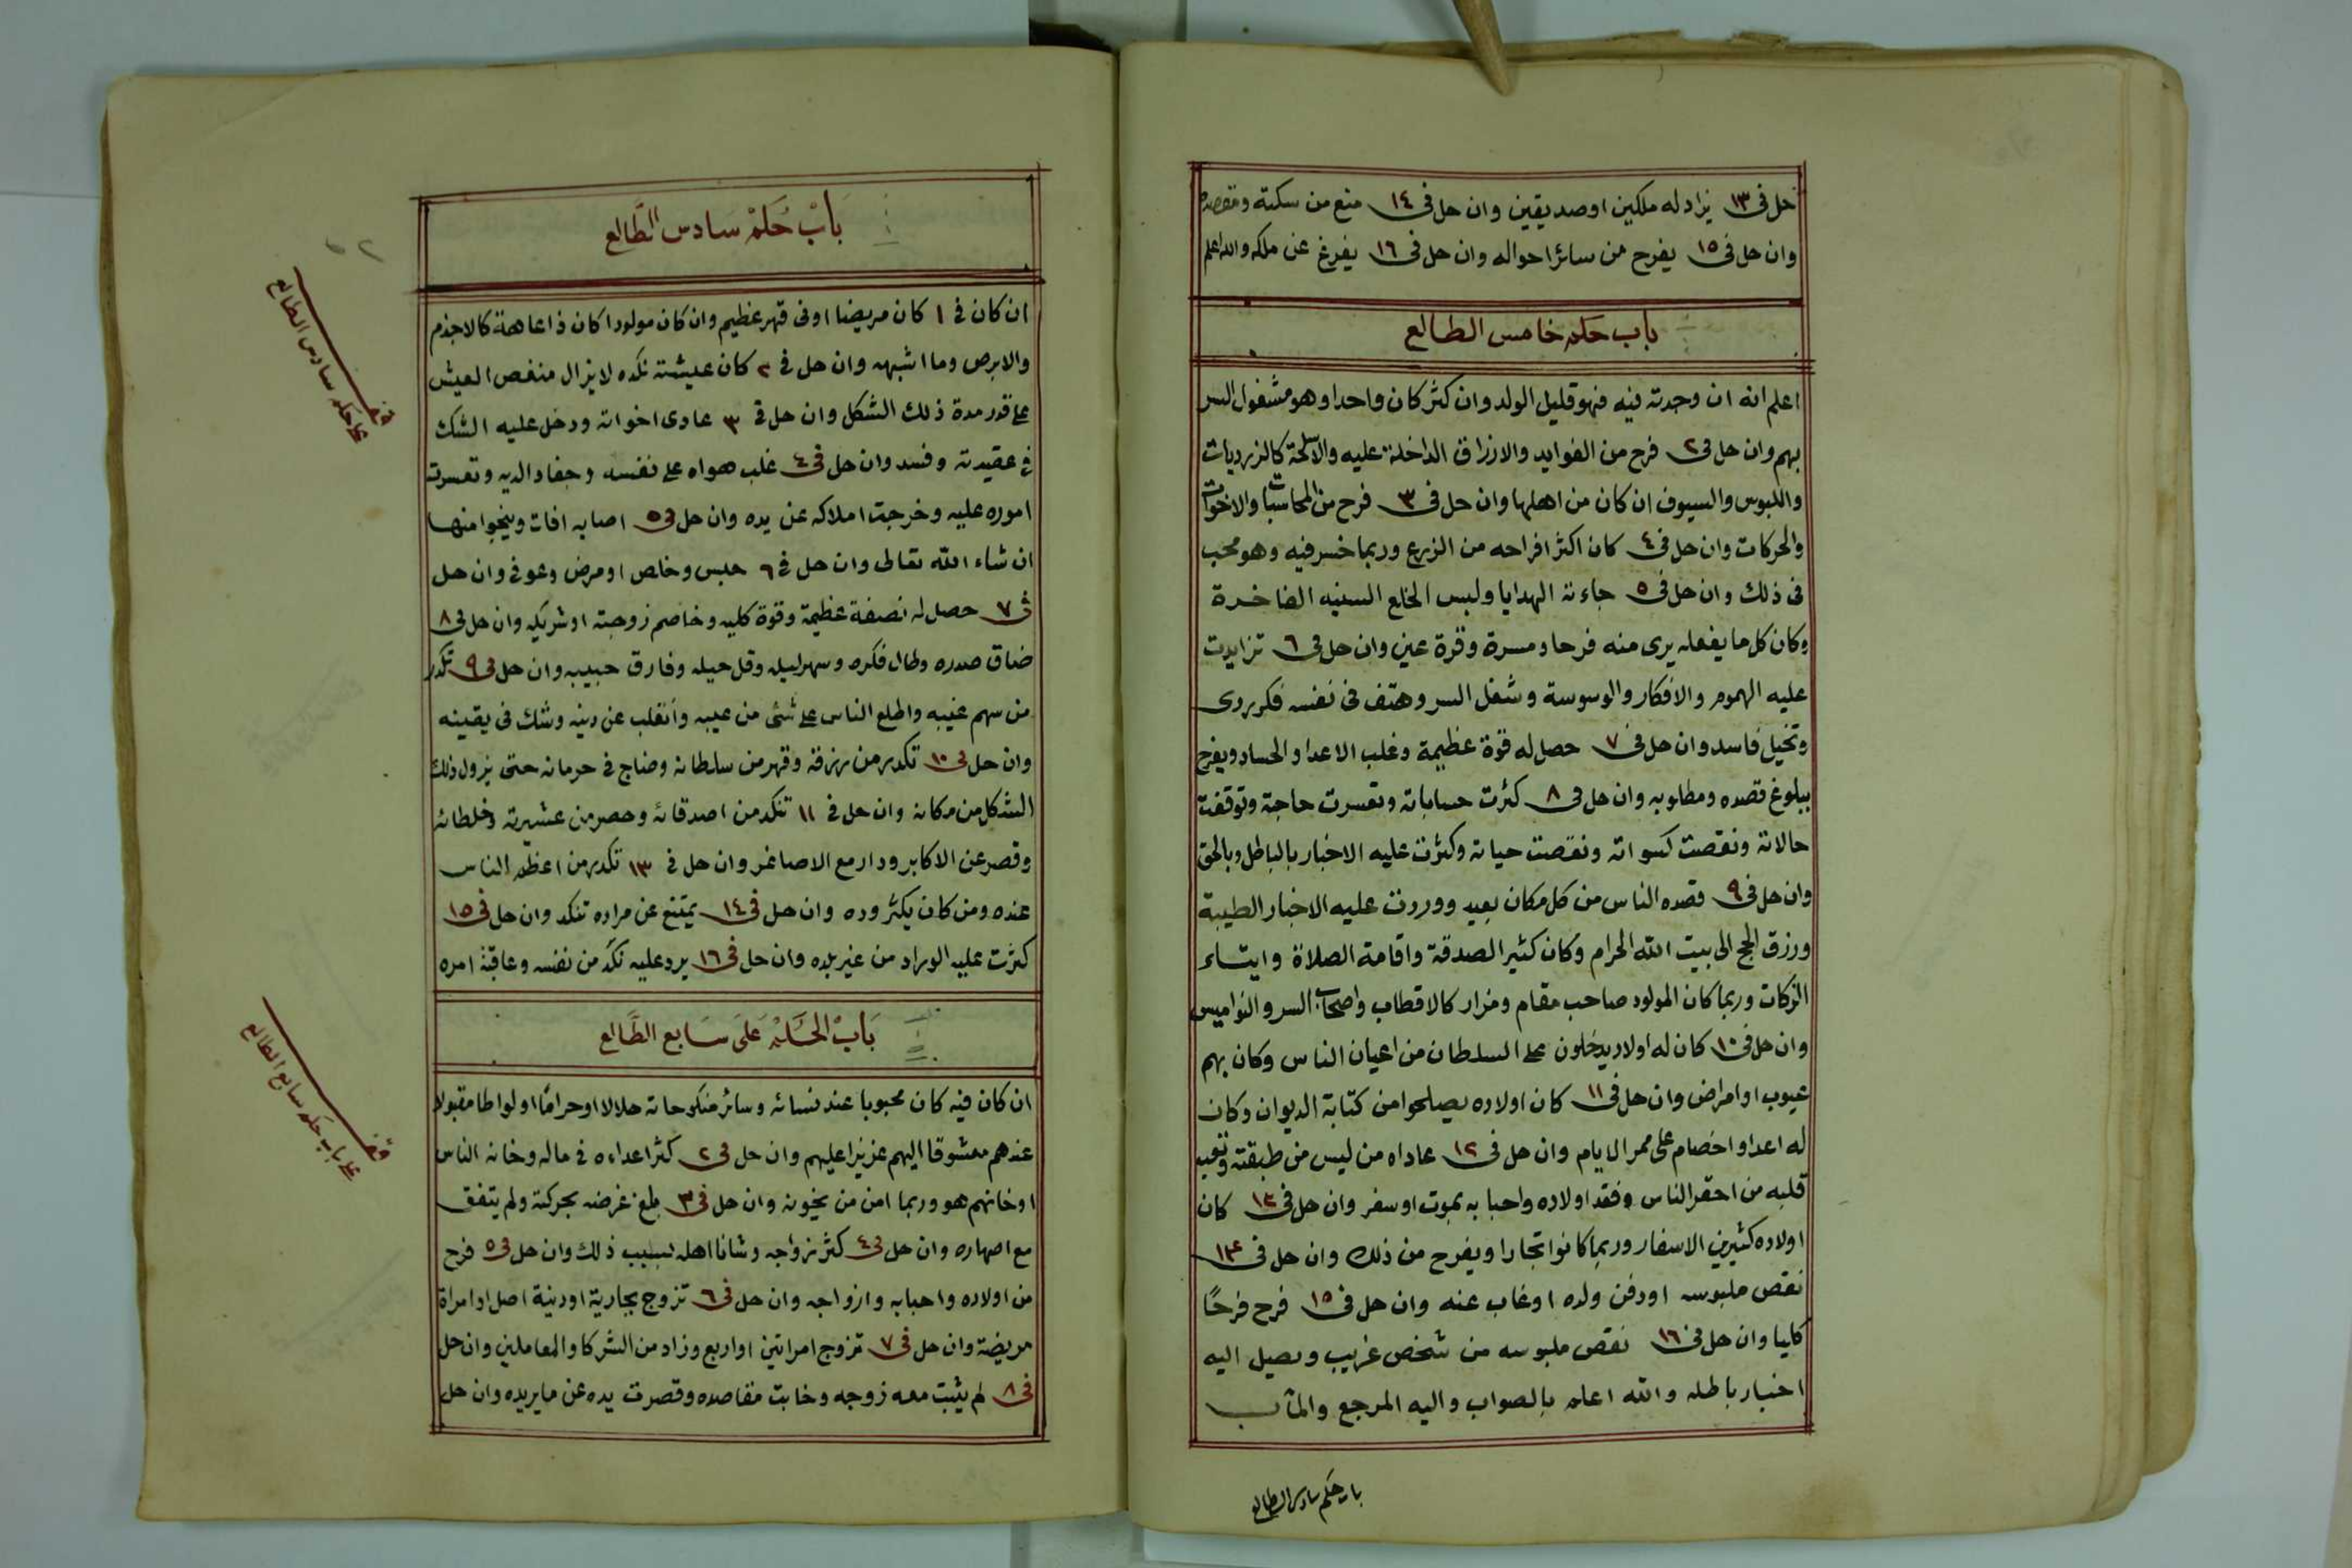 حل فى ١٣ يزاد له ملكين او صديقين وان حل فى ١٤ منع من سكنة ومقصده
وان حل فى ١٥ يفرح من سائر احواله وان حل فى ١٦ يفرغ عن ملكه والله اعلم
باب حكم خامس الطالع
اعلم انه ان وجدته فيه فهو قليل الولد وان كثر كان واحدا وهو مشغول السر
بهم وان حل فى ٢ فرح من الفوايد والارزاق الداخلة عليه والاسلحة كالزرديات
واللبوس والسيوف ان كان من اهلها وان حل فى ٣ فرح من المحاسبات والاخوات
والحركات وان حل فى ٤ كان اكثر افراحه من الزرع وربما خسر فيه وهو محب
فى ذلك وان حل فى ٥ جاءته الهدايا ولبس الخلع السنيه الفاخرة
وكان كل ما يفعله يرى منه فرحا ومسرة وقرة عين وان حل فى ٦ تزايدت
عليه الهموم والافكار والوسوسة وشغل السر وهتف فى نفسه فكر ردى
وتخيل فاسد وان حل فى ٧ حصل له قوة عظيمة وغلب الاعدا والحساد ويفرح
ببلوغ قصده ومطلوبه وان حل فى ٨ كثرت حساباته وتعسرت حاجته وتوقفت
حالاته ونقصت كسواته ونقصت حياته وكثرت عليه الاخبار بالباطل وبالحق
وان حل فى ٩ قصده الناس من كل مكان بعيد ووردت عليه الاخبار الطيبة
ورزق الحج الى بيت الله الحرام وكان كثير الصدقة واقامة الصلاة وايتاء
الزكات وربما كان المولود صاحب مقام ومزار كالاقطاب واصحاب السر والنواميس
وان حل فى ١٠ كان له اولاد يدخلون على السلطان من اعيان الناس وكان بهم
عيوب او امراض وان حل فى ١١ كان اولاده يصلحوا من كتابة الديوان وكان
له اعدا واخصام على ممر الايام وان حل فى ١٢ عاداه من ليس من طبقته وتعب
قلبه من احقر الناس وفقد اولاده واحبابه بموت او سفر وان حل فى ١٣ كان
اولاده كثيرين الاسفار وربما كانوا تجارا ويفرح من ذلك وان حل فى ١٤
نقص ملبوسه او دفن ولده او غاب عنه وان حل فى ١٥ فرح فرحًا
كليا وان حل فى ١٦ نقص ملبوسه من شخص غريب وصيل اليه
اخبار باطله والله اعلم بالصواب واليه المرجع والمآب
باب حكم سادس الطالع
باب حكم سادس الطالع
ان كان فى ١ كان مريضا او فى قهر عظيم وان كان مولودا كان ذا عاهة كالاجذم
والابرص وما اشبهه وان حل فى ٢ كان عيشته نكده لا يزال منغص العيش
على قدر مدة ذلك الشكل وان حل فى ٣ عادى اخواته ودخل عليه الشك
فى عقيدته وفسد وان حل فى ٤ غلب هواه على نفسه وجفا والديه وتعسرت
اموره عليه وخرجت املاكه عن يده وان حل فى ٥ اصابه افات وينجوا منها
ان شاء الله تعالى وان حل فى ٦ حبس وخلص او مرض وعوفى وان حل
فى ٧ حصل له نصفة عظيمة وقوة كليه وخاصم زوجته او شريكه وان حل فى ٨
ضاق صدره وطال فكره وسهر ليله وقل حيله وفارق حبيبه وان حل فى ٩ تكدر
من سهم غيبه واطلع الناس على شئ من عيبه وانقلب عن دينه وشك فى يقينه
وان حل فى ١٠ تكدر من رزقه وقهر من سلطانه وضاج فى حرمانه حتى يزول ذلك
الشكل من مكانه وان حل فى ١١ تنكد من اصدقائه وحصر من عشيرته وخلطائه
وقصر عن الاكابر ودار مع الاصاغر وان حل فى ١٣ تكدر من اعظم الناس
عنده ومن كان يكثر وده وان حل فى ١٤ يمتنع عن مراده تنكد وان حل فى ١٥
كثرت عليه الوراد من غير بلده وان حل فى ١٦ يرد عليه نكد من نفسه وعاقبة امره
باب الحكم على سابع الطالع
ان كان فيه كان محبوبا عند نسائه وسائر منكوحاته حلالا او حرامًا او لواطا مقبولا
عندهم معشوقا اليهم عزيزا عليهم وان حل فى ٢ كثر اعداءه فى ماله وخانه الناس
او خانهم هو وربما امن من يخونه وان حل فى ٣ بلغ غرضه بحركته ولم يتفق
مع اصهاره وان حل فى ٤ كثر زواجه وشانا اهله بسبب ذلك وان حل فى ٥ فرح
من اولاده واحبابه وازواجه وان حل فى ٦ تزوج بجارية او دنية اصل او امراة
مريضة وان حل فى ٧ تزوج امراتين او اربع وزاد من الشركا والمعاملين وان حل
فى ٨ لم يثبت معه زوجه وخابت مقاصده وقصرت يده عن ما يريده وان حل
قف
على حكم سادس الطالع
قف
على باب حكم سابع الطالع